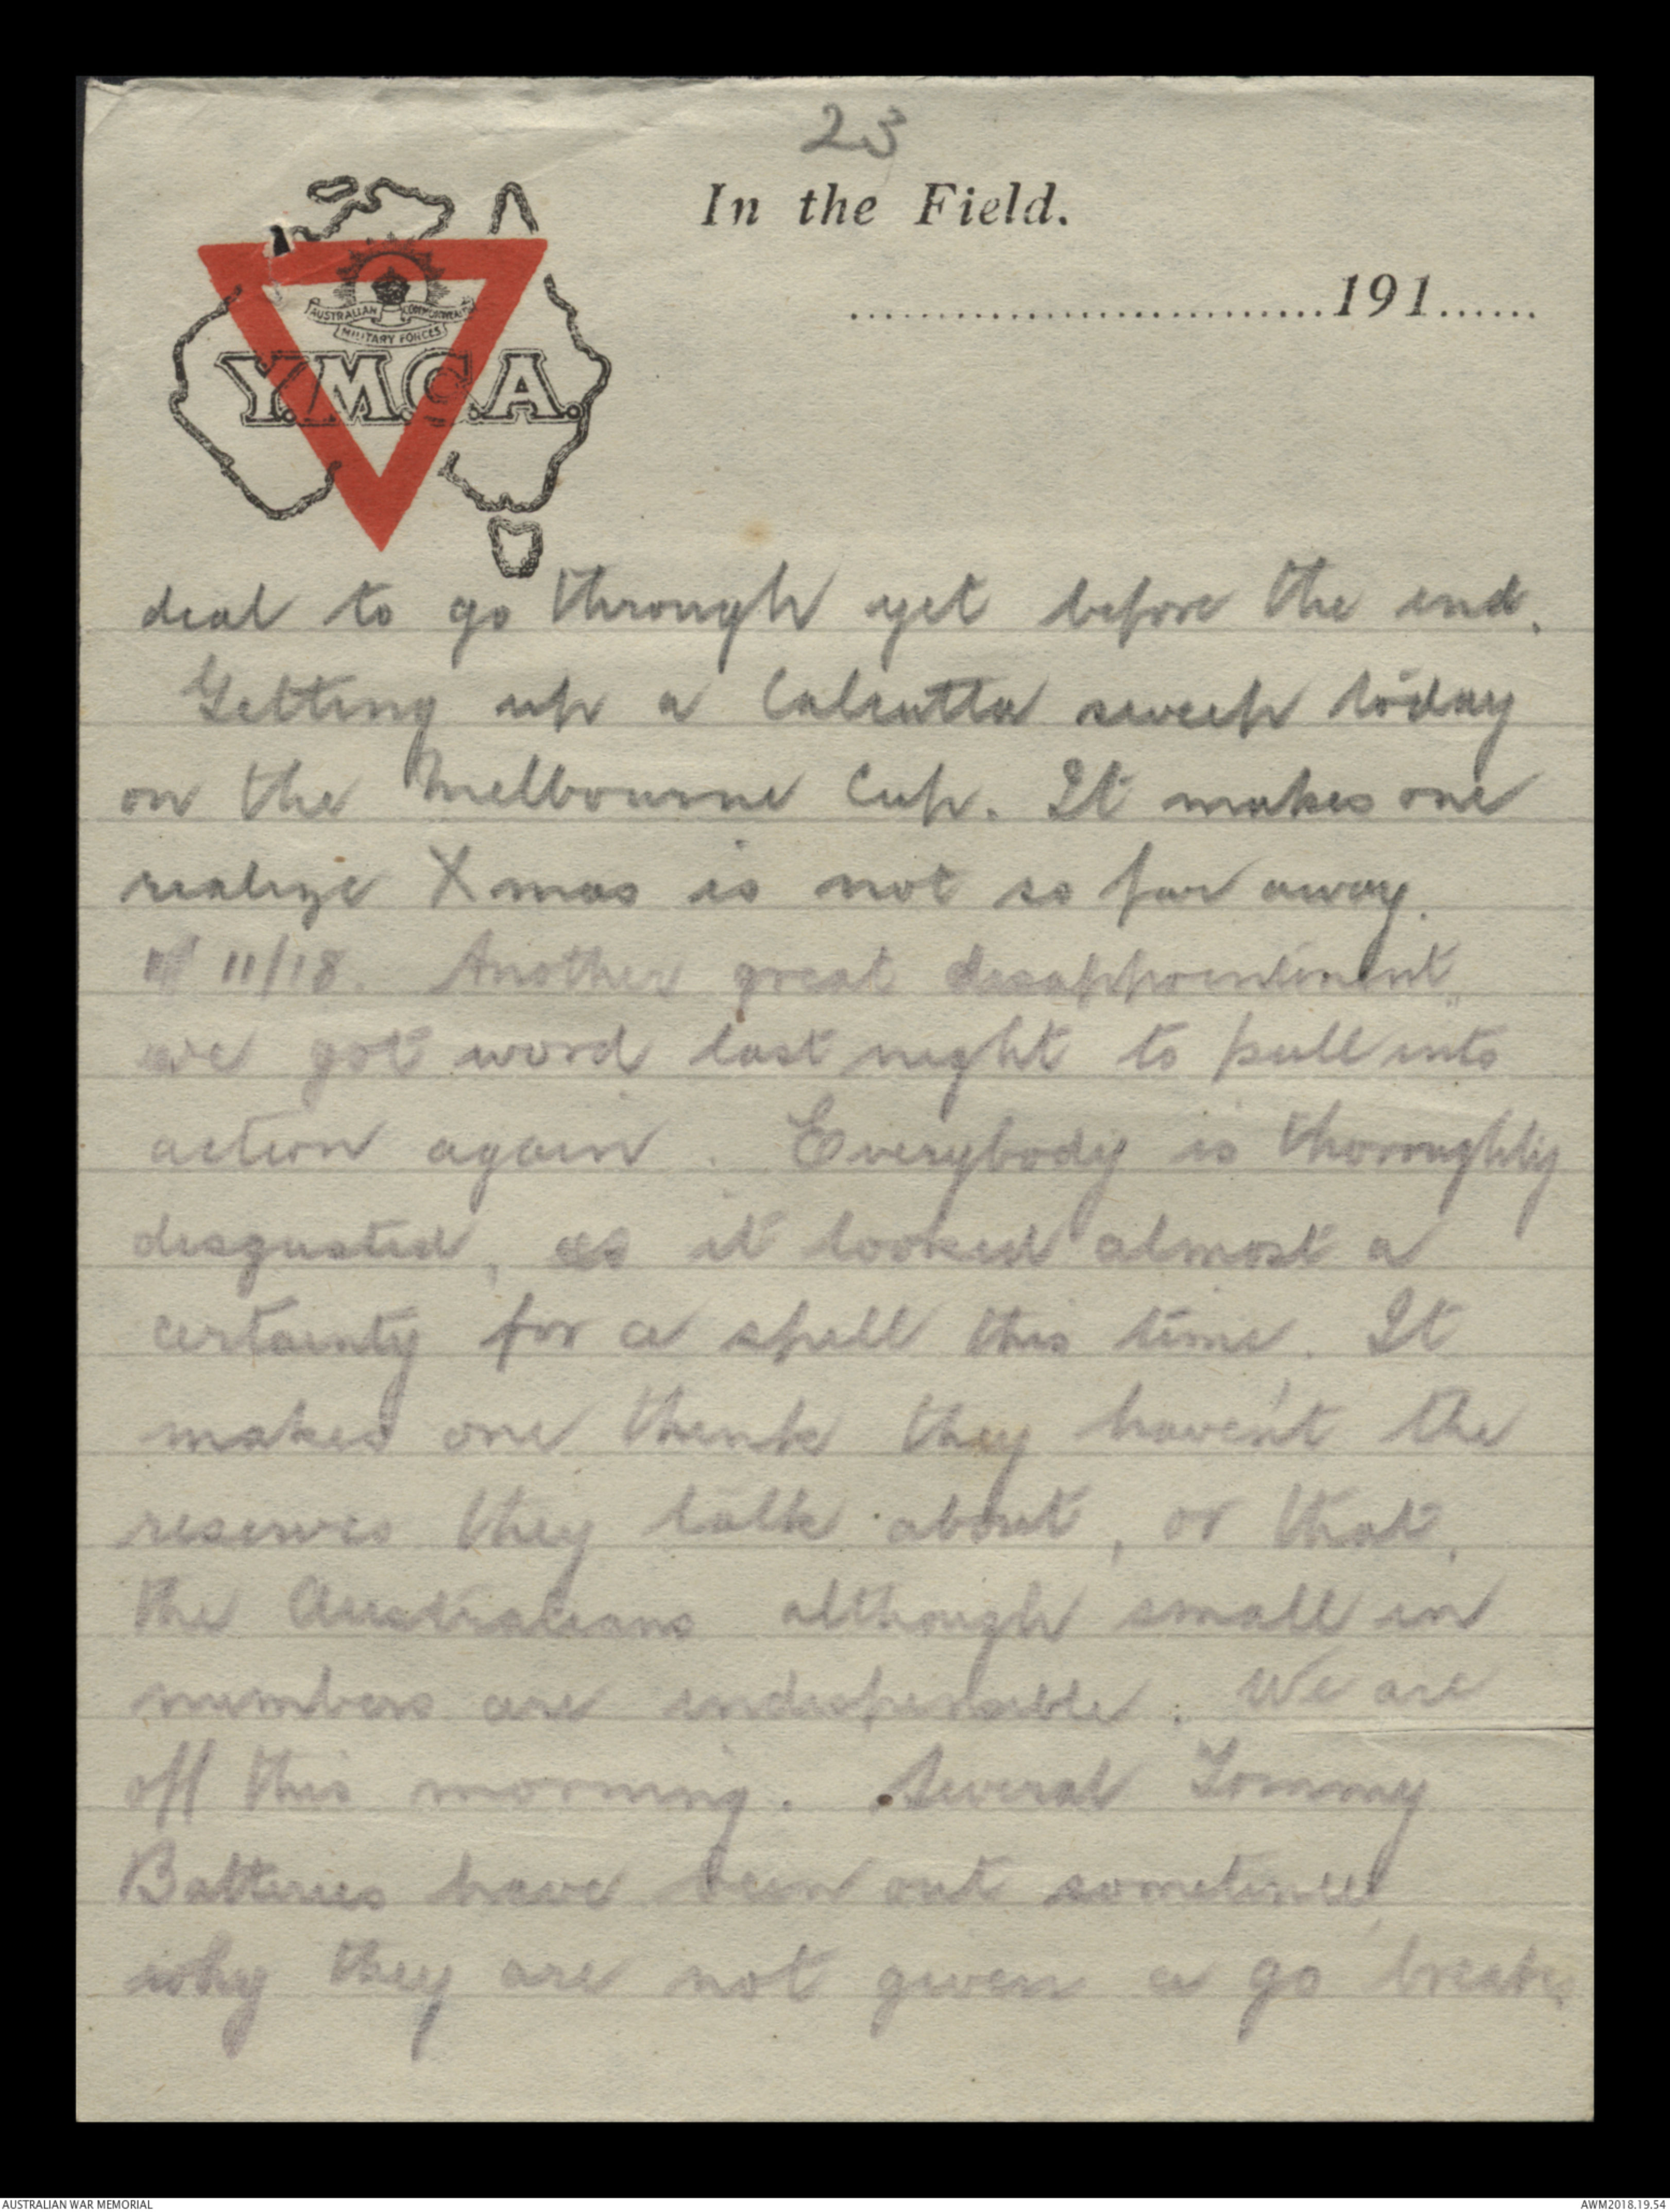 23
In the Field.
AUSTRALIAN COMMONWEALTH
MILITARY FORCES
Y.M.C.A.
..............................191......
deal to go through yet before the end.
Getting up a Calcutta sweep today
on the Melbourne Cup. It makes one
realize Xmas is not so far away.
11/18. Another great disappointment,
we got word last night to pull into
action again. Everybody is thoroughly
disgusted, as it looked almost a
certainty for a spell this time. It
makes one think they haven't the
reserves they talk about, or that,
the Australians although small in
numbers are indispensible. We are
off this morning. Several Tommy
Batteries have been out sometime,
why they are not given a go breaks
AUSTRALIAN WAR MEMORIAL
AWM2018.19.54